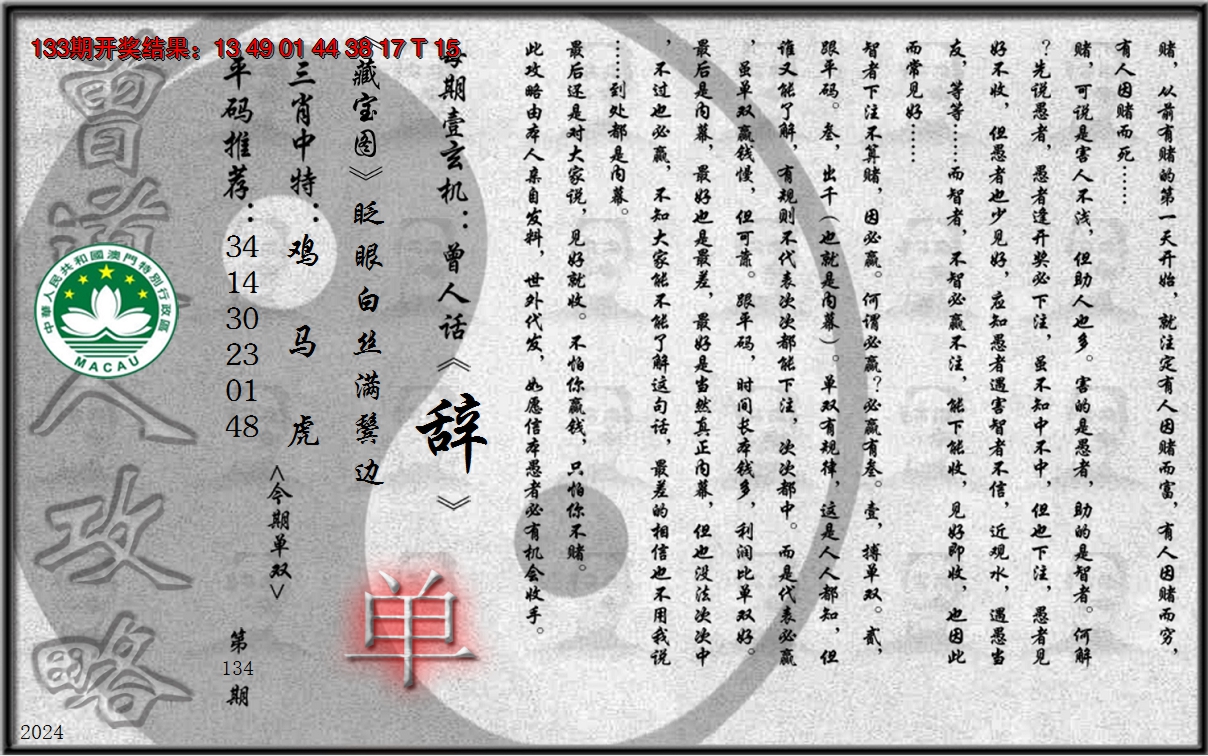 133期开奖结果：13 49 01 44 38 17 T 15
赌，从前有赌的第一天开始，就注定有人因赌而富，有人因赌而穷，
有人因赌而死……
赌，可说是害人不浅，但助人也多。害的是愚者，助的是智者。何解
？先说愚者，愚者逢开奖必下注，虽不知中不中，但也下注，愚者见
好不收，但愚者也少见好，应知愚者遇害智者不信，近观水，遇愚当
友，等等……而智者，不智必赢不注，能下能收，见好即收，也因此
而常见好……
智者下注不算赌，因必赢。何谓必赢？必赢有叁。壹，搏单双。贰，
跟平码。叁，出千（也就是内幕）。单双有规律，这是人人都知，但
谁又能了解，有规则不代表次次都能下注，次次都中。而是代表必赢
，虽单双赢钱慢，但可靠。跟平码，时间长本钱多，利润比单双好。
最后是内幕，最好也是最差，最好是当然真正内幕，但也没法次次中
，不过也必赢，不知大家能不能了解这句话，最差的相信也不用我说
……到处都是内幕。
最后还是对大家说，见好就收。不怕你赢钱，只怕你不赌。
此攻略由本人亲自发料，世外代发，如愿信本愚者必有机会收手。
每期壹玄机：曾人话《辞》
《藏宝图》眨眼白丝满鬓边
单
三肖中特：鸡 马 虎
<今期单双>
平码推荐：34 14 30 23 01 48
第134期
曾道人攻略
中華人民共和國澳門特別行政區
MACAU
2024